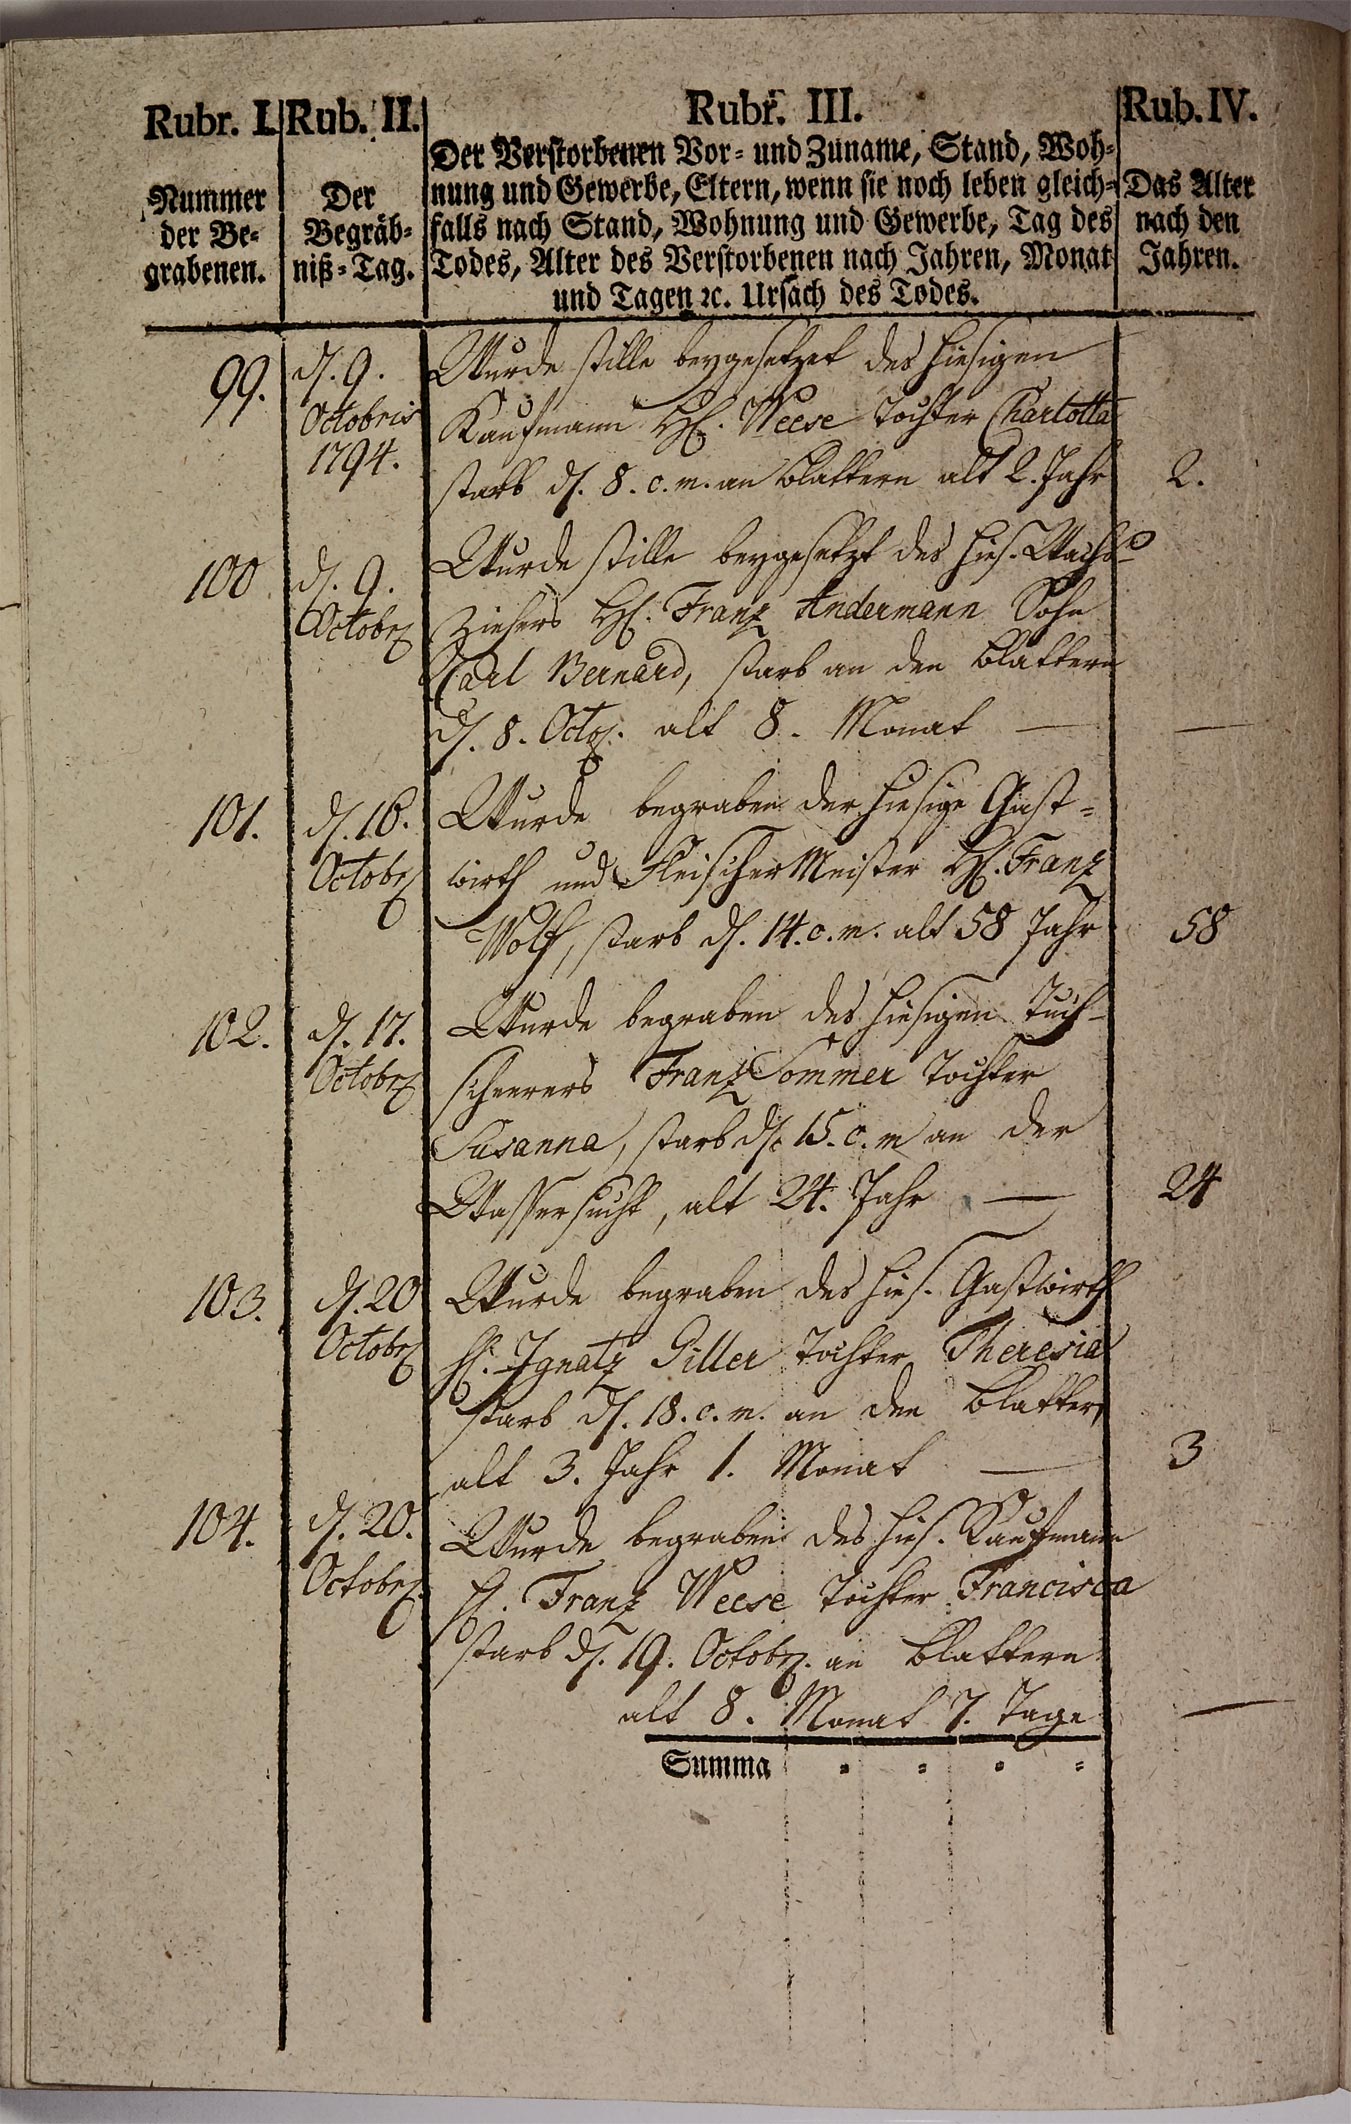 Rubr. I. Rub. II. Rubr. III. Rub. IV.
Nummer der Be-
grabenen.
Der
Begräb-
niß-Tag.
Der Verstorbenen Vor- und Zuname, Stand, Woh-
nung und Gewerbe, Eltern, wenn sie noch leben gleich-
falls nach Stand, Wohnung und Gewerbe, Tag des
Todes, Alter des Verstorbenen nach Jahren, Monat
und Tagen ꝛc. Ursach des Todes.
Das Alter
nach den
Jahren.
99. d. 9. Wurde stille beygesetzet des hiesigen
Octobris Kaufmann H. Weese Tochter Charlotta
1794. starb d. 8. c. m. an Blattern alt 2. Jahr 2.
100 d. 9. Wurde stille beygesetzt des hies. Wachs-
Octobr. ziehers H. Franz Andermann Sohn
Carl Bernard, starb an den Blattern
d. 8. Octo. alt 8. Monat — —
101. d. 16. Wurde begraben der hiesige Gast-
Octobr. wirth und Fleischer Meister H. Franz
Wolf, starb d. 14. c. m. alt 58 Jahr 58
102. d. 17. Wurde begraben des hiesigen Tuch-
Octobr. scheerers Franz Sommer Tochter
Susanna, starb d. 15. c. m an der
Wassersucht, alt 24. Jahr — 24
103. d. 20 Wurde begraben des hies. Gastwirth
Octobr. H. Ignatz Giller Tochter Theresia
starb d. 18. c. m. an den Blattern
alt 3. Jahr 1. Monat — 3
104. d. 20. Wurde begraben des hies. Kaufmann
Octobr. H. Franz Weese Tochter Francisca
starb d. 19. Octobr. an Blattern
alt 8. Monat 7. Tage —
Summa - - - -